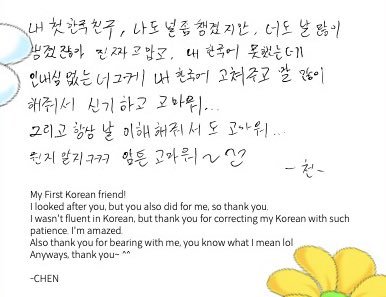 내 첫 한국친구, 나도 널 좀 챙겼지만, 너도 날 많이
챙겨줬잖아 진짜 고맙고, 내 한국어 못했는데
인내심 없는 너 그게 내 한국어 고쳐주고 많이
해줘서 신기하고 고마워...
그리고 항상 날 이해해줘서도 고마워...
뭔지 알지ㅋㅋ 암튼 고마워~ ^^
-천-
My First Korean friend!
I looked after you, but you also did for me, so thank you.
I wasn't fluent in Korean, but thank you for correcting my Korean with such
patience. I'm amazed.
Also thank you for bearing with me, you know what I mean lol
Anyways, thank you~ ^^
-CHEN